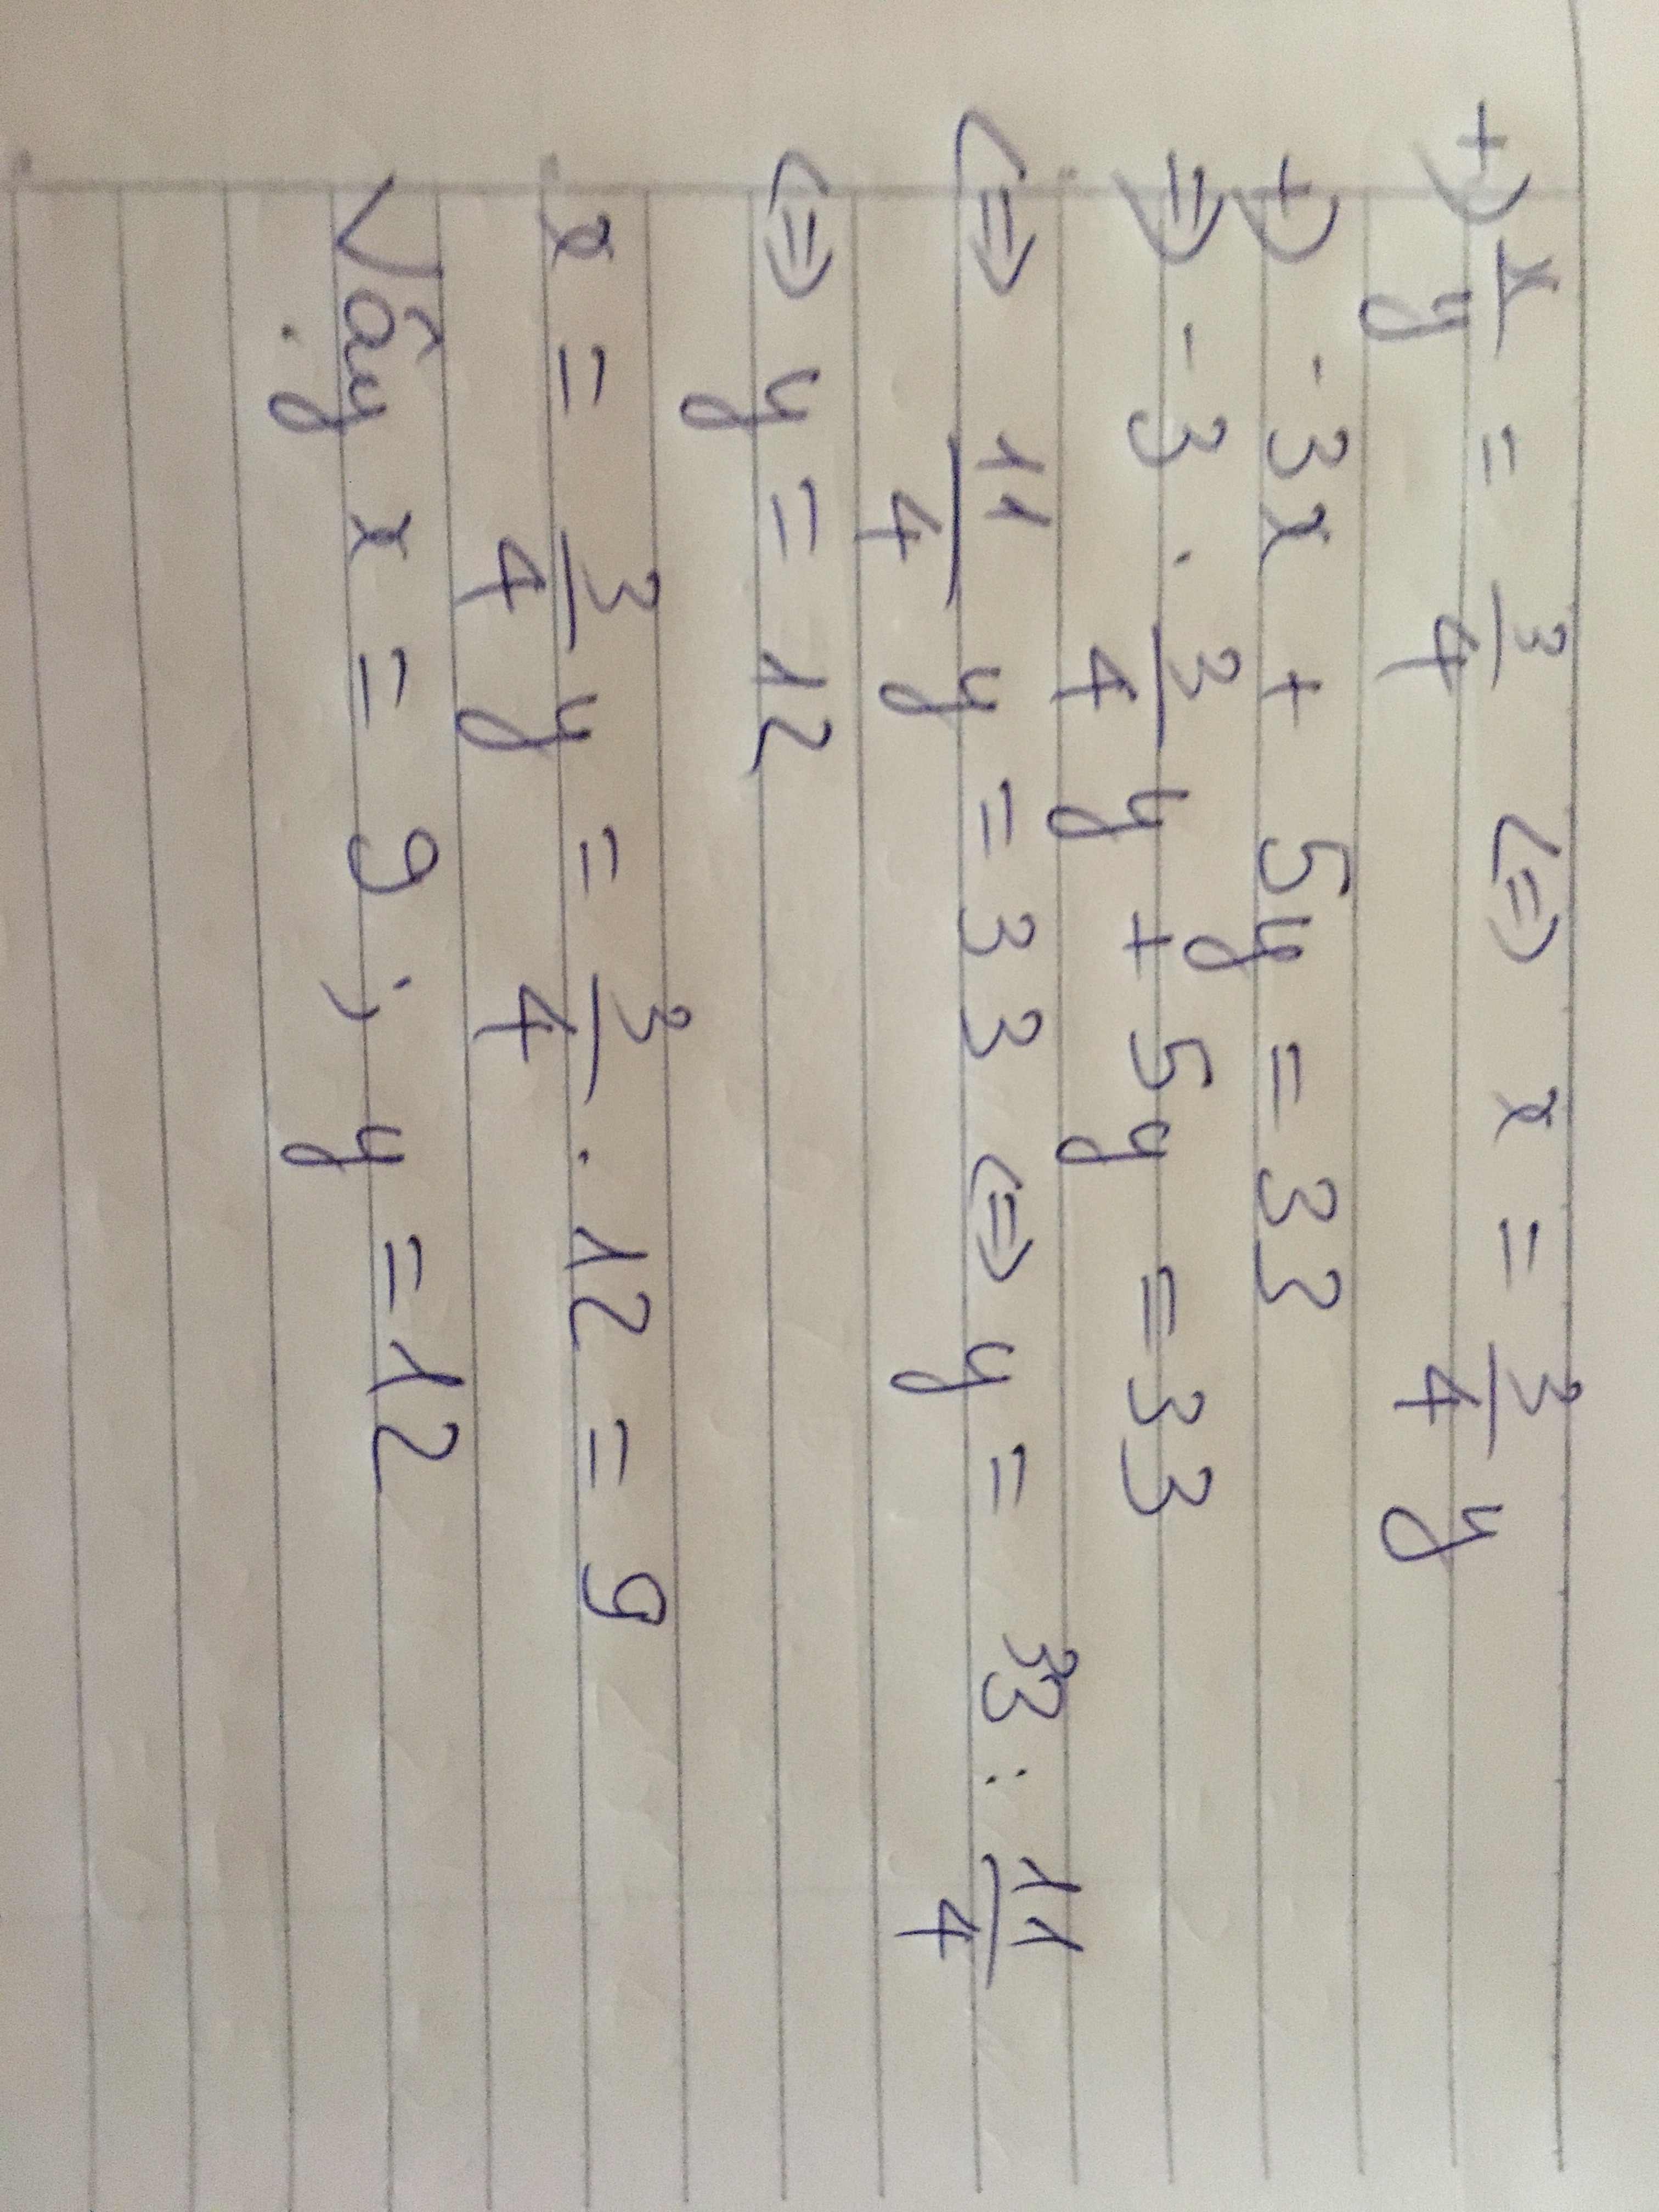 +) x/y = 3/4 <=> x = 3/4 y
+) -3x + 5y = 33
=> -3 . 3/4 y + 5y = 33
<=> 11/4 y = 33 <=> y = 33 : 11/4
<=> y = 12
x = 3/4 y = 3/4 . 12 = 9
Vậy x = 9 ; y = 12